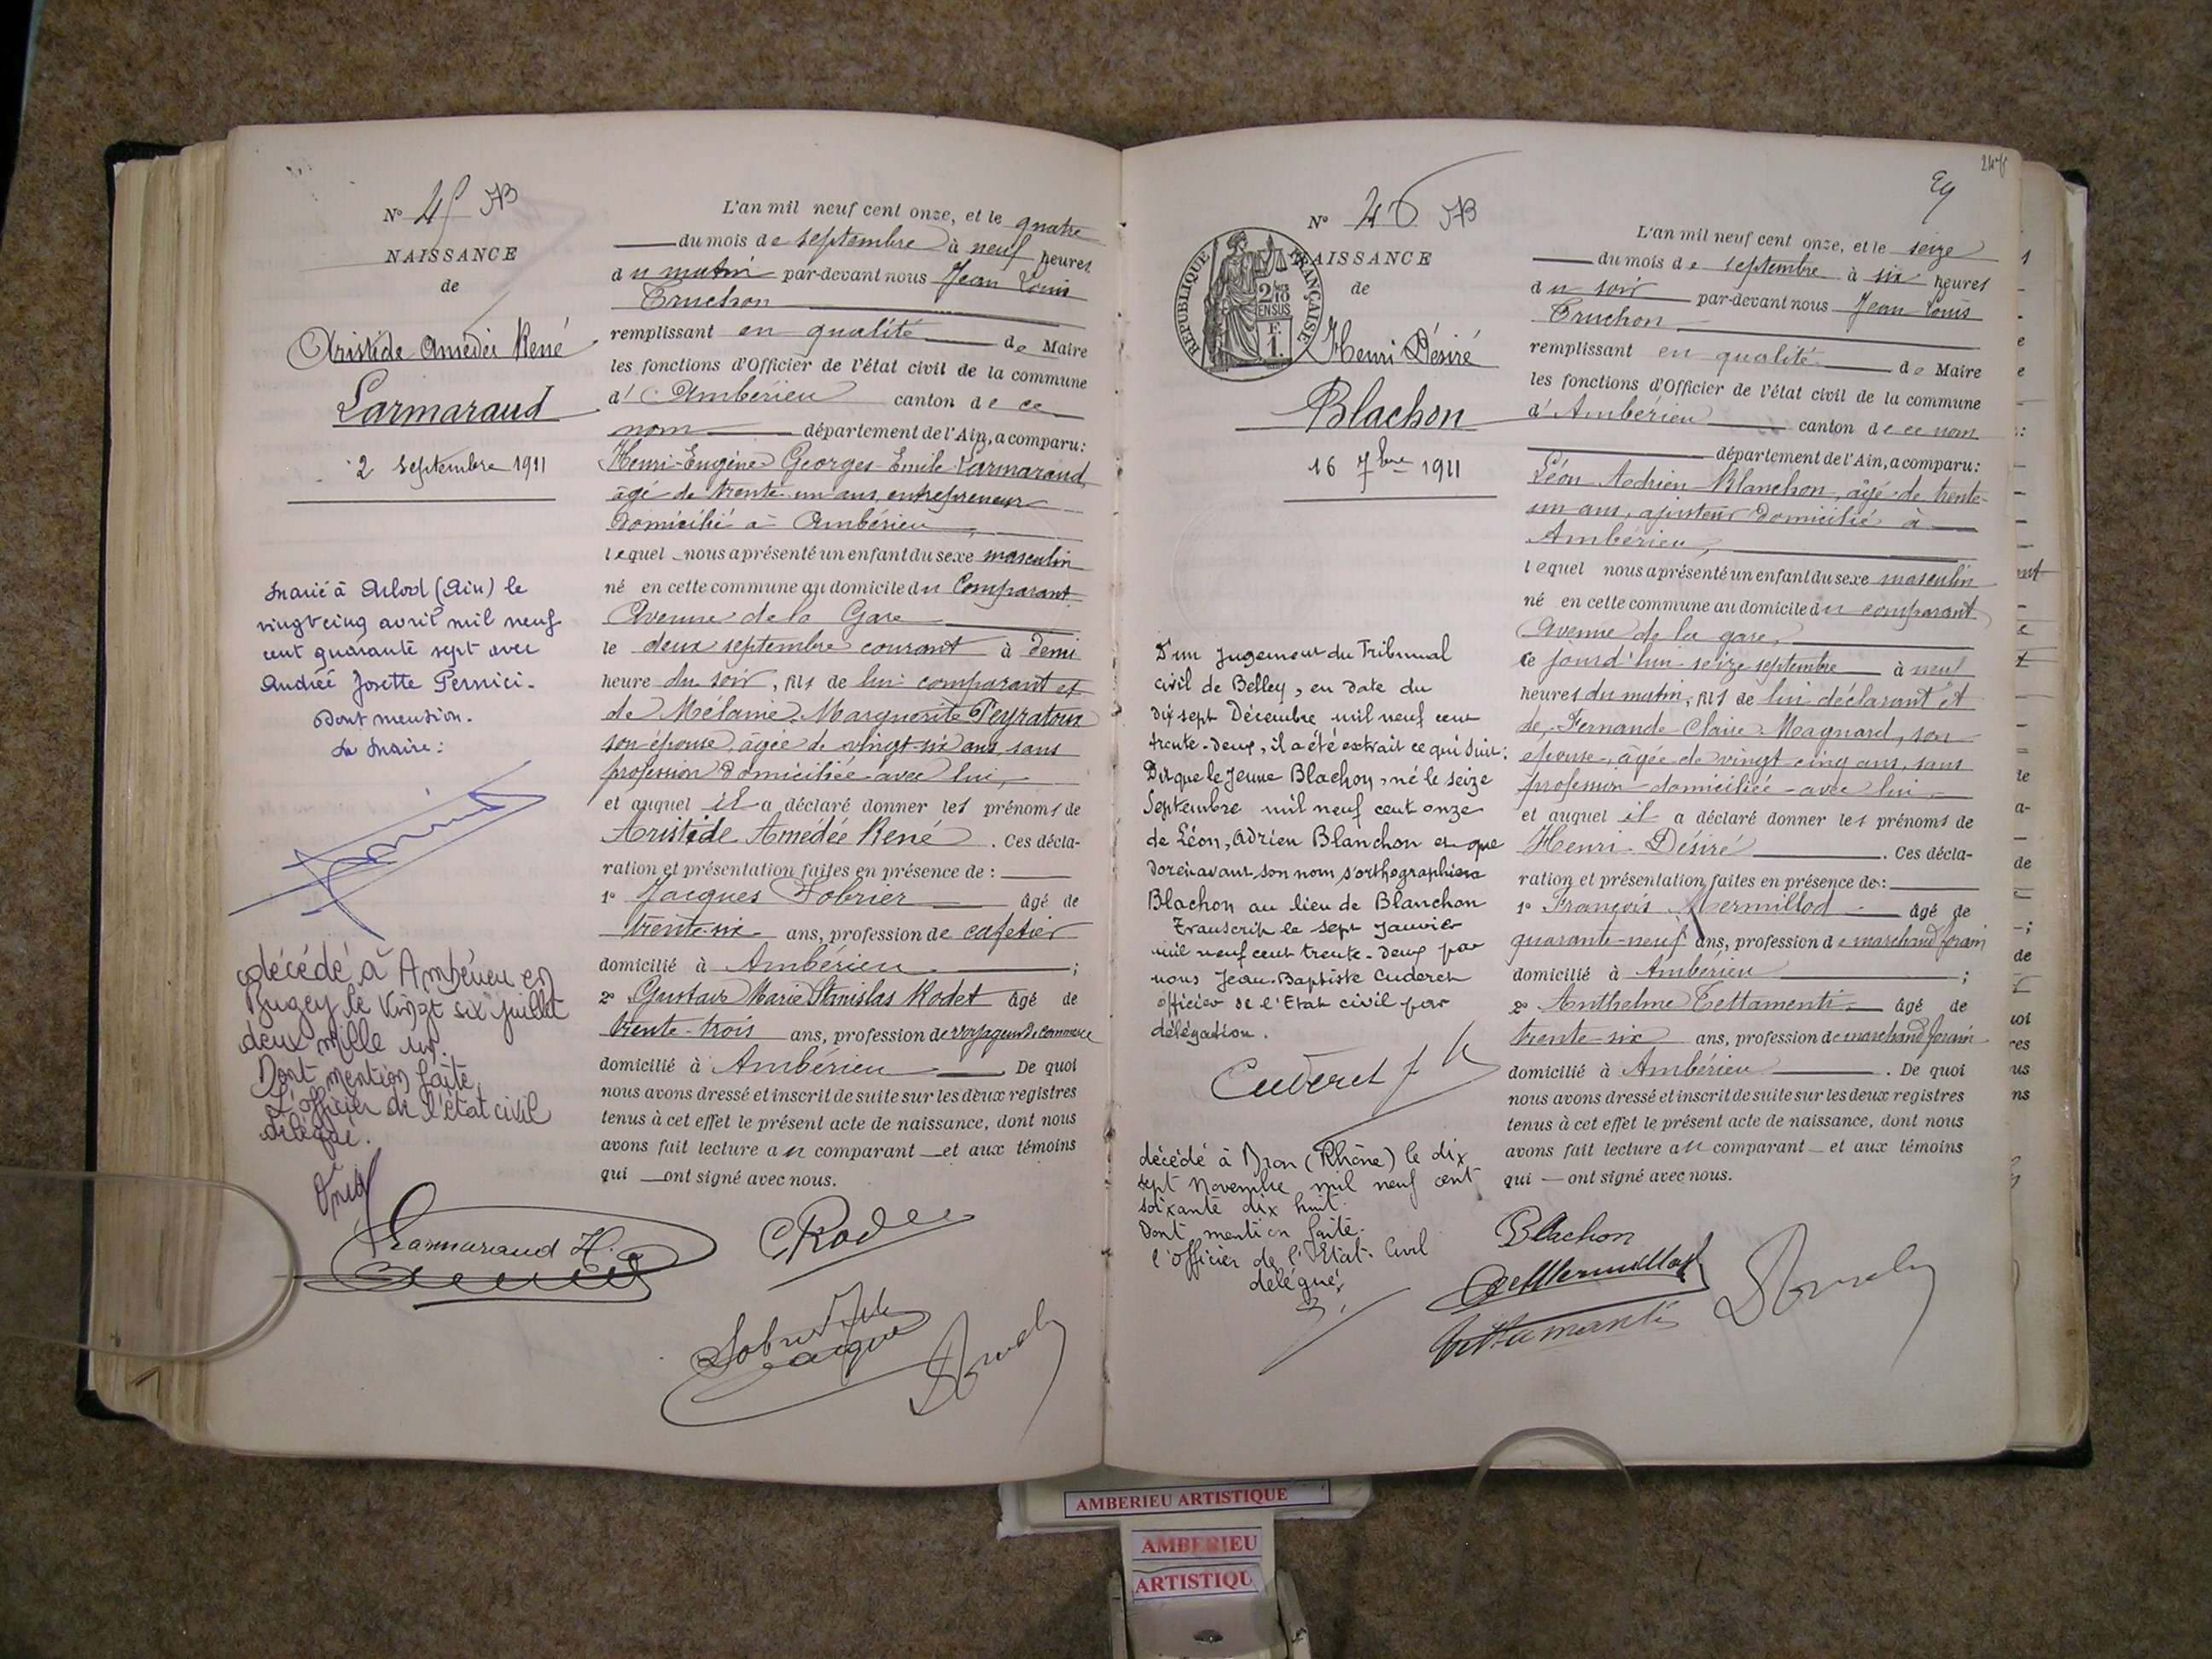 N° 45 JB
NAISSANCE
de
Aristide Amédée René
Larmaraud
2 Septembre 1911
marié à Arlod (Ain) le
vingt cinq avril mil neuf
cent quarante sept avec
Andrée Josette Pernici.
Dont mention.
Le Maire :
décédé à Ambérieu en
Bugey le vingt six juillet
deux mille un.
Dont mention faite,
L'officier de l'état civil
délégué.
L'an mil neuf cent onze, et le quatre
du mois de septembre à neuf heures
du matin par-devant nous Jean Louis
Truchon
remplissant en qualité de Maire
les fonctions d'Officier de l'état civil de la commune
d'Ambérieu canton de ce
nom département de l'Ain, a comparu :
Henri-Eugène Georges-Emile Larmaraud,
âgé de trente-un ans, entrepreneur
domicilié à Ambérieu,
lequel nous a présenté un enfant du sexe masculin
né en cette commune au domicile du Comparant
Avenue de la Gare
le deux septembre courant à demi
heure du soir, fils de lui comparant et
de Mélanie Marguerite Peyratoux
son épouse, âgée de vingt-six ans sans
profession domiciliée avec lui,
et auquel il a déclaré donner les prénoms de
Aristide Amédée René. Ces décla-
ration et présentation faites en présence de :
1° Jacques Sobrier âgé de
trente-six ans, profession de cafetier
domicilié à Ambérieu ;
2° Gustave Marie Stanislas Rodet âgé de
trente-trois ans, profession de voyageur de commerce
domicilié à Ambérieu. De quoi
nous avons dressé et inscrit de suite sur les deux registres
tenus à cet effet le présent acte de naissance, dont nous
avons fait lecture au comparant et aux témoins
qui ont signé avec nous.
Larmaraud H.
247
N° 46 JB
NAISSANCE
de
RÉPUBLIQUE FRANÇAISE
2/10 EN SUS
1 F.
Henri Désiré
Blachon
16 7bre 1911
D'un jugement du Tribunal
civil de Belley, en date du
dix sept Décembre mil neuf cent
trente-deux, il a été extrait ce qui suit :
Dit que le jeune Blachon, né le seize
Septembre mil neuf cent onze
de Léon, Adrien Blanchon et que
dorénavant son nom s'orthographiera
Blachon au lieu de Blanchon
Transcrit le sept Janvier
mil neuf cent trente-deux par
nous Jean-Baptiste Cuderet
officier de l'Etat civil par
délégation.
Cuderet J B
décédé à Bron (Rhône) le dix
sept Novembre mil neuf cent
soixante dix huit.
Dont mention faite.
l'officier de l'Etat-Civil
délégué,
L'an mil neuf cent onze, et le seize
du mois de septembre à six heures
du soir par-devant nous Jean Louis
Truchon
remplissant en qualité de Maire
les fonctions d'Officier de l'état civil de la commune
d'Ambérieu canton de ce nom
département de l'Ain, a comparu :
Léon Adrien Blanchon, âgé de trente-
un ans, ajusteur domicilié à
Ambérieu,
lequel nous a présenté un enfant du sexe masculin
né en cette commune au domicile du comparant
Avenue de la gare,
ce jourd'hui seize septembre à neuf
heures du matin, fils de lui déclarant et
de Fernande Claire Magnard, son
épouse, âgée de vingt cinq ans, sans
profession domiciliée avec lui,
et auquel il a déclaré donner les prénoms de
Henri-Désiré. Ces décla-
ration et présentation faites en présence de :
1° François Mermillod âgé de
quarante-neuf ans, profession de marchand forain
domicilié à Ambérieu ;
2° Anthelme Tettamenti âgé de
trente-six ans, profession de marchand forain
domicilié à Ambérieu. De quoi
nous avons dressé et inscrit de suite sur les deux registres
tenus à cet effet le présent acte de naissance, dont nous
avons fait lecture au comparant et aux témoins
qui ont signé avec nous.
Blachon
AMBERIEU ARTISTIQUE
AMBERIEU
ARTISTIQU